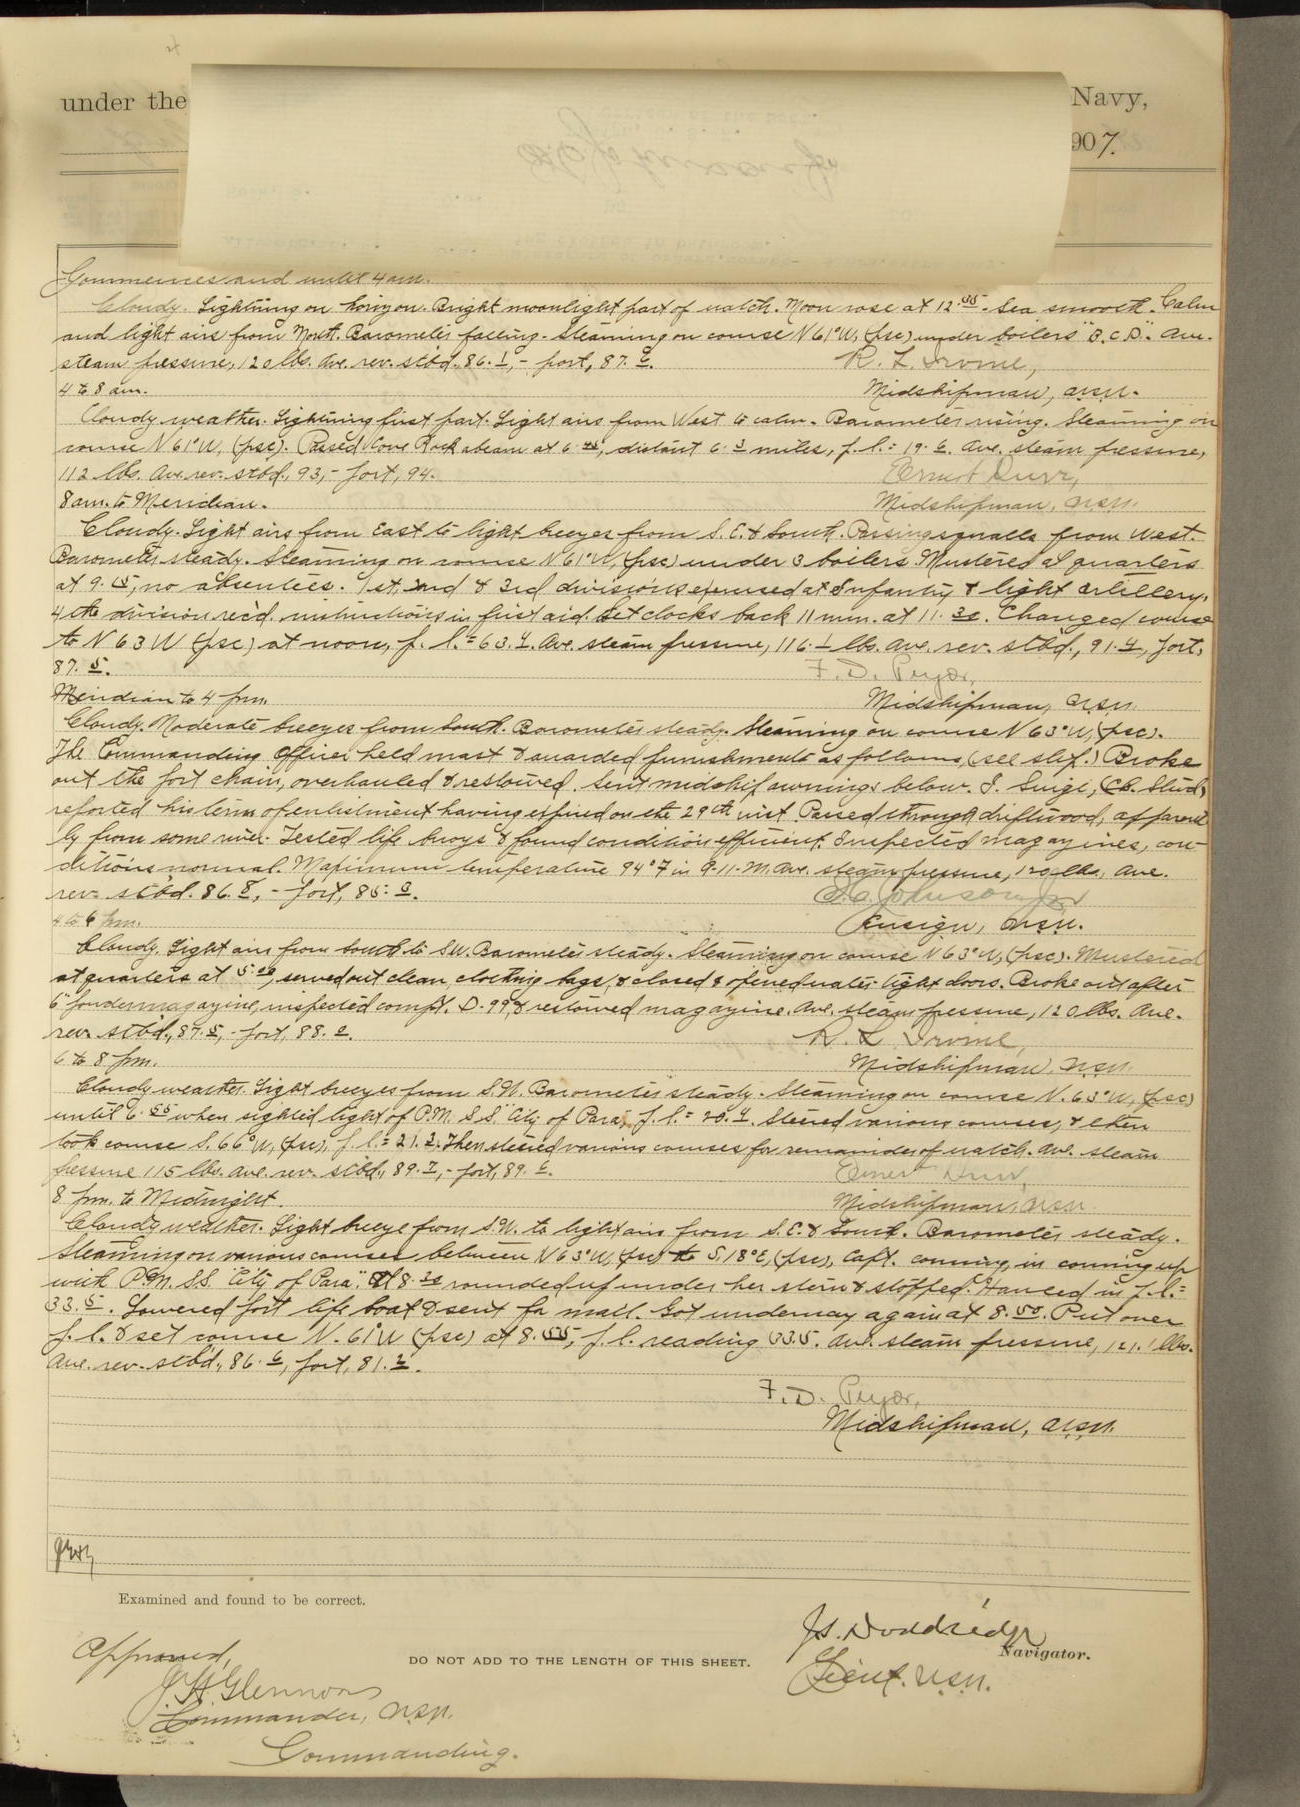 under the Navy,
1907.
Commences and until 4 am.
Cloudy. Lightning on horizon. Bright moonlight part of watch. Moon rose at 12.55. Sea smooth. Calm
and light airs from North. Barometer falling. Steaming on course N 61° W, (psc) under boilers "B.C.D." Ave.
steam pressure, 120 lbs. Ave. rev. stbd. 86.1, - port, 87.6.
R. L. Irvine,
4 to 8 am.
Midshipman, U.S.N.
Cloudy weather. Lightning first part. Light airs from West to calm. Barometer rising. Steaming on
course N 61° W, (psc). Passed Cove Rock abeam at 6.45, distant 6.3 miles, p.l.= 19.6. Ave. steam pressure,
112 lbs. Ave. rev. stbd., 93, - port, 94.
Ernest Durr,
8 am. to Meridian.
Midshipman, U.S.N.
Cloudy. Light airs from East to light breezes from S.E. & South. Passing squalls from West.
Barometer steady. Steaming on course N 61° W, (psc) under 3 boilers. Mustered at quarters
at 9.15, no absentees. 1st, 2nd & 3rd divisions exercised at Infantry & light artillery,
4th division rec'd. instructions in first aid. Set clocks back 11 min. at 11.30. Changed course
to N 63 W (psc) at noon, p.l.= 63.4. Ave. steam pressure, 116.1 lbs. Ave. rev. stbd., 91.4, port,
87.5.
F. D. Pryor,
Meridian to 4 pm.
Midshipman, U.S.N.
Cloudy. Moderate breezes from South. Barometer steady. Steaming on course N 63° W, (psc).
The Commanding Officer held mast & awarded punishments as follows, (see slip.) Broke
out the port chain, overhauled & restowed. Sent midship awnings below. I. Suigi, (Cb. Stwd.)
reported his term of enlistment having expired on the 29th inst. Passed through driftwood, apparent-
ly from some river. Tested life buoys & found condition efficient. Inspected magazines, con-
ditions normal. Maximum temperature 94° F in 9-11-M. Ave. steam pressure, 120 lbs. Ave.
rev. stbd. 86.8, - port, 85.
Johnson Jr
4 to 6 pm.
Ensign, U.S.N.
Cloudy. Light airs from South to SW. Barometer steady. Steaming on course N 63° W, (psc). Mustered
at quarters at 5.00, served out clean clothing bags, & closed & opened water-tight doors. Broke out after
6" powder magazine, inspected compt. D-99 & restowed magazine. Ave. steam pressure, 120 lbs. Ave.
rev. stbd., 87.5, - port, 88.2.
R. L. Irvine,
6 to 8 pm.
Midshipman, U.S.N.
Cloudy weather. Light breezes from S.W. Barometer steady. Steaming on course N. 63° W, (psc)
until 6.55 when sighted light of P.M. S.S. "City of Para", p.l.= 20.4. Steered various courses, & then
took course S. 66° W, (psc), p.l.= 21.2. Then steered various courses for remainder of watch. Ave. steam
pressure 115 lbs. Ave. rev. stbd., 89.7, - port, 89.6.
Ernest Durr,
8 pm. to Midnight.
Midshipman, U.S.N.
Cloudy weather. Light breeze from S.W. to light airs from S.E. & South. Barometer steady.
Steaming on various courses between N 63° W, (psc) to S. 18° E, (psc), Capt. conning, in coming up
with P.M. S.S. "City of Para". At 8.30 rounded up under her stern & stopped. Hauled in p.l.=
33.5. Lowered port life boat & sent for mail. Got underway again at 8.50. Put over
p.l. & set course N. 61° W (psc) at 8.55, p.l. reading 33.5. Ave. steam pressure, 121.1 lbs.
Ave. rev. stbd., 86.6, port, 81.2.
F. D. Pryor,
Midshipman, U.S.N.
Examined and found to be correct.
Approved,
J. H. Glennon
Commander, U.S.N.
Commanding.
DO NOT ADD TO THE LENGTH OF THIS SHEET.
J. S. Doddridge
Navigator.
Lieut. U.S.N.